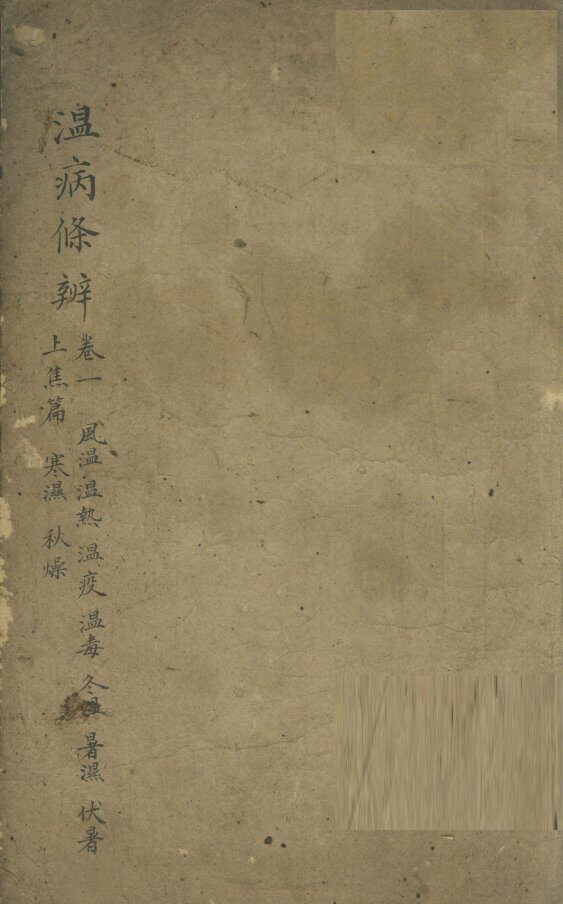 温病條辨
卷一 風温 温熱 温疫 温毒 冬温 暑濕 伏暑
上焦篇 寒濕 秋燥